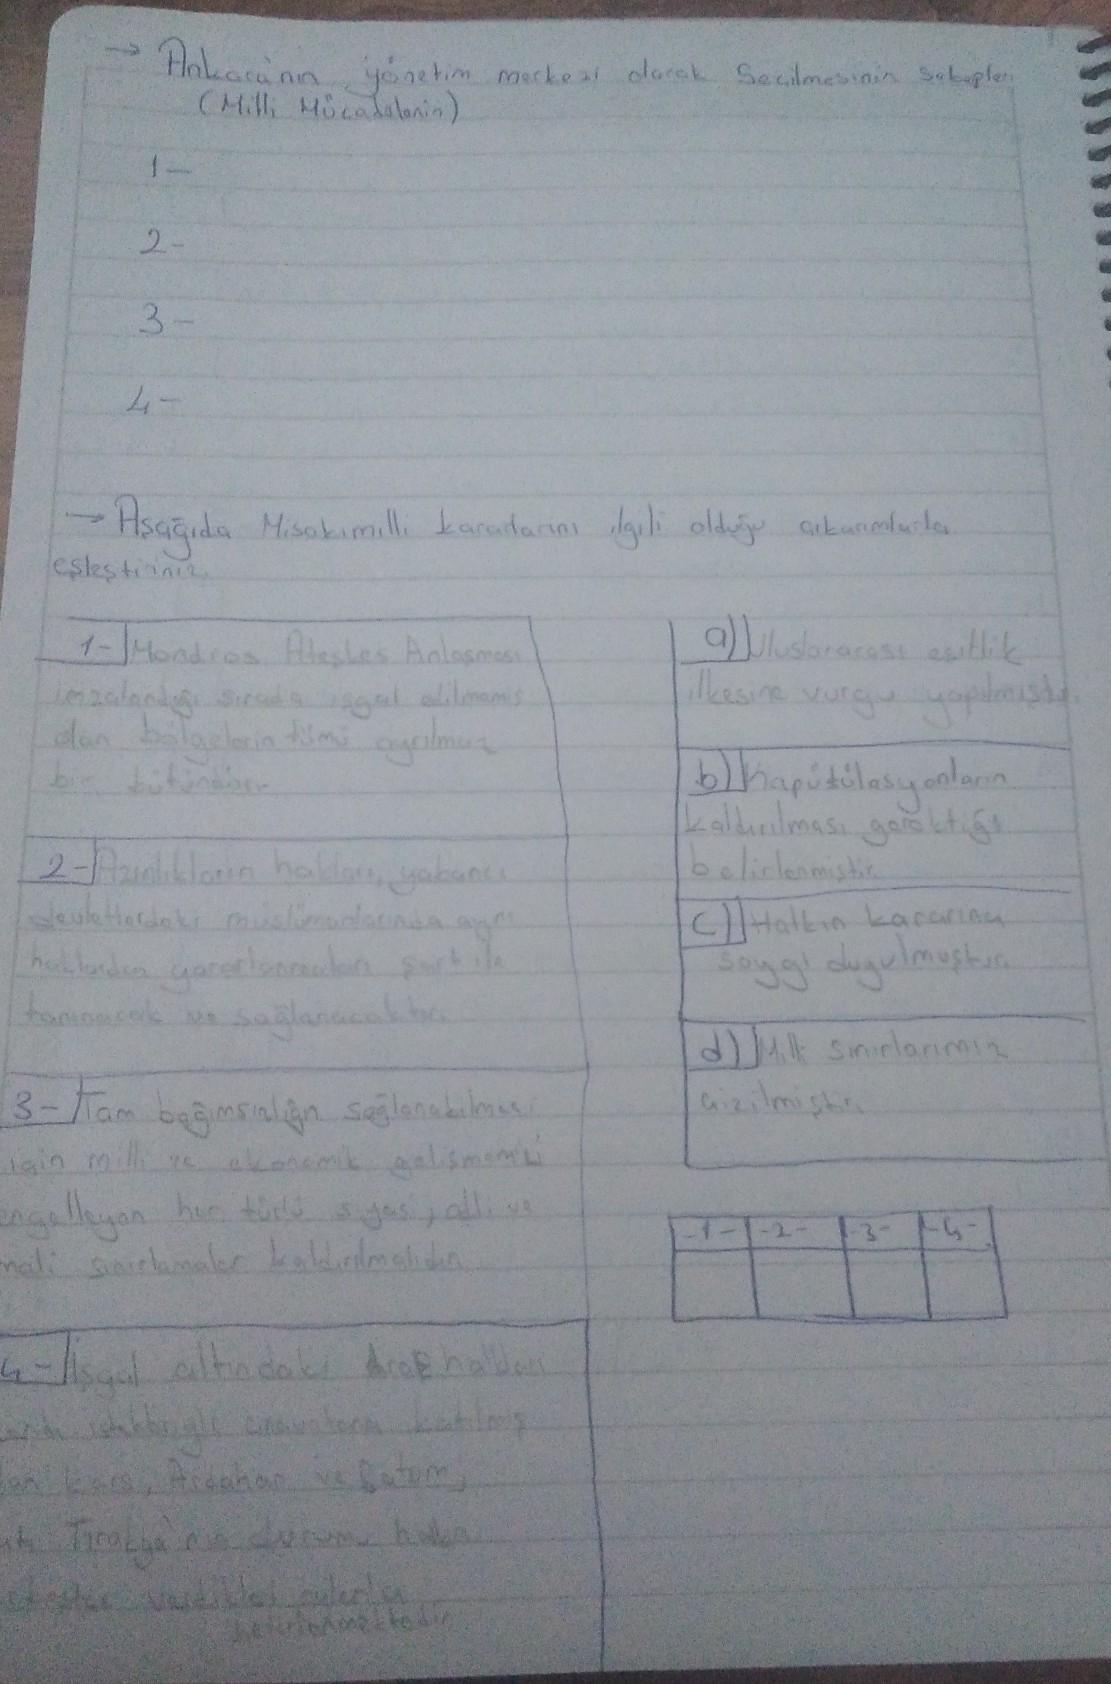 → Ankara'nın yönetim merkezi olarak Seçilmesinin Sebepleri
(Milli Mücadelenin)
1-
2-
3-
4-
→ Aşağıda Misakımilli kararlarını ilgili olduğu çıkarımlarla
eşleştiriniz.
1- Mondros Ateşkes Anlaşması
imzalandığı sırada işgal edilmemiş
olan bölgelerin tümü ayrılmaz
bir bütündür.
2- Azınlıkların hakları, yabancı
devletlerdeki müslümanlarında aynı
haklardan yararlanmaları şartı ile
tanınacak ve sağlanacaktır.
3- Tam bağımsızlığın sağlanabilmesi
için milli ve ekonomik gelişmemizi
engelleyen her türlü siyasi, adli ve
mali sınırlamalar kaldırılmalıdır.
4- İşgal altındaki Arap halkları
katılmış
Kars, Ardahan ve Batum,
Tırakya'nın durumu halkın
verdikleri oylarla
belirlenmektedir
a) Uluslararası eşitlik
ilkesine vurgu yapılmıştır.
b) Kapütülasyonların
kaldırılması gerektiği
belirlenmiştir.
c) Halkın kararına
saygı duyulmuştur.
d) Milli sınırlarımız
çizilmiştir.
-1- -2- -3- -4-